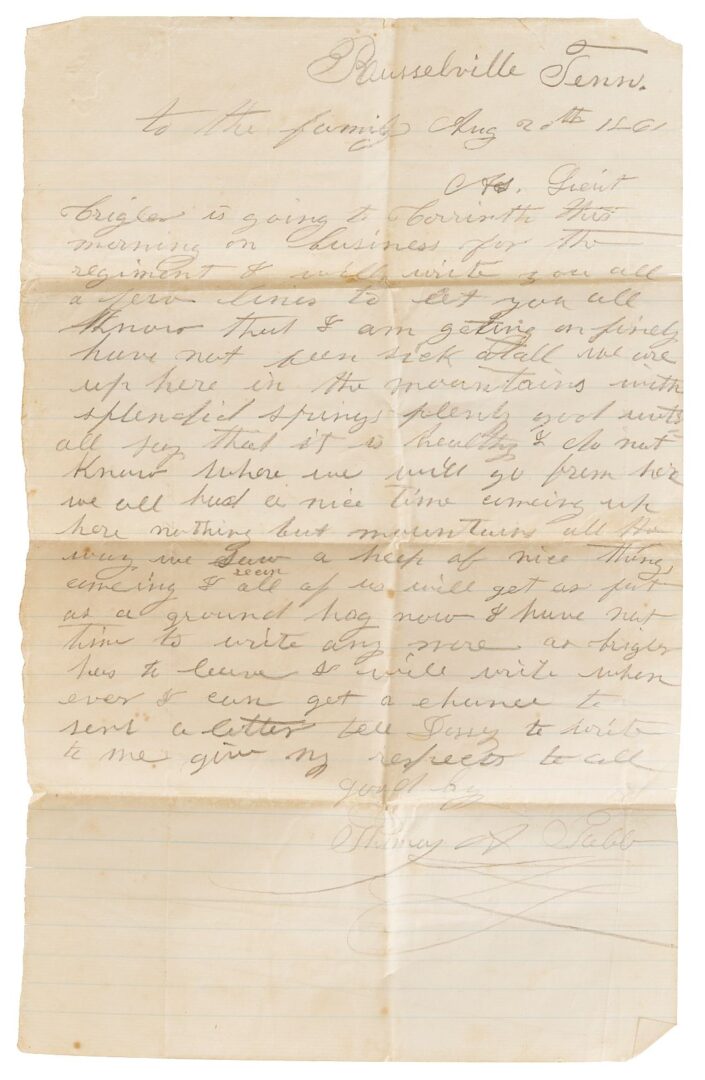 Rausselville Tenn.
to the family Aug 20th 1861
As. Lieut
Crigler is going to Corrinth this
morning on business for the
regiment I will write you all
a few lines to let you all
Know that I am geting on finely
have not been sick atall we are
up here in the mountains with
splendid springs plenty good
all say that it is healthy I do not
Know where we will go from her
we all had a nice time comeing up
here nothing but mountains all the
way we Saw a heep of nice things
comeing I recon all of us will get as fat
as a ground hog now I have not
time to write any more as Crigler
has to leave I will write when
ever I can get a chance to
sent a letter tell to write
to me give my respects to all
good by
Thomas A Tabb